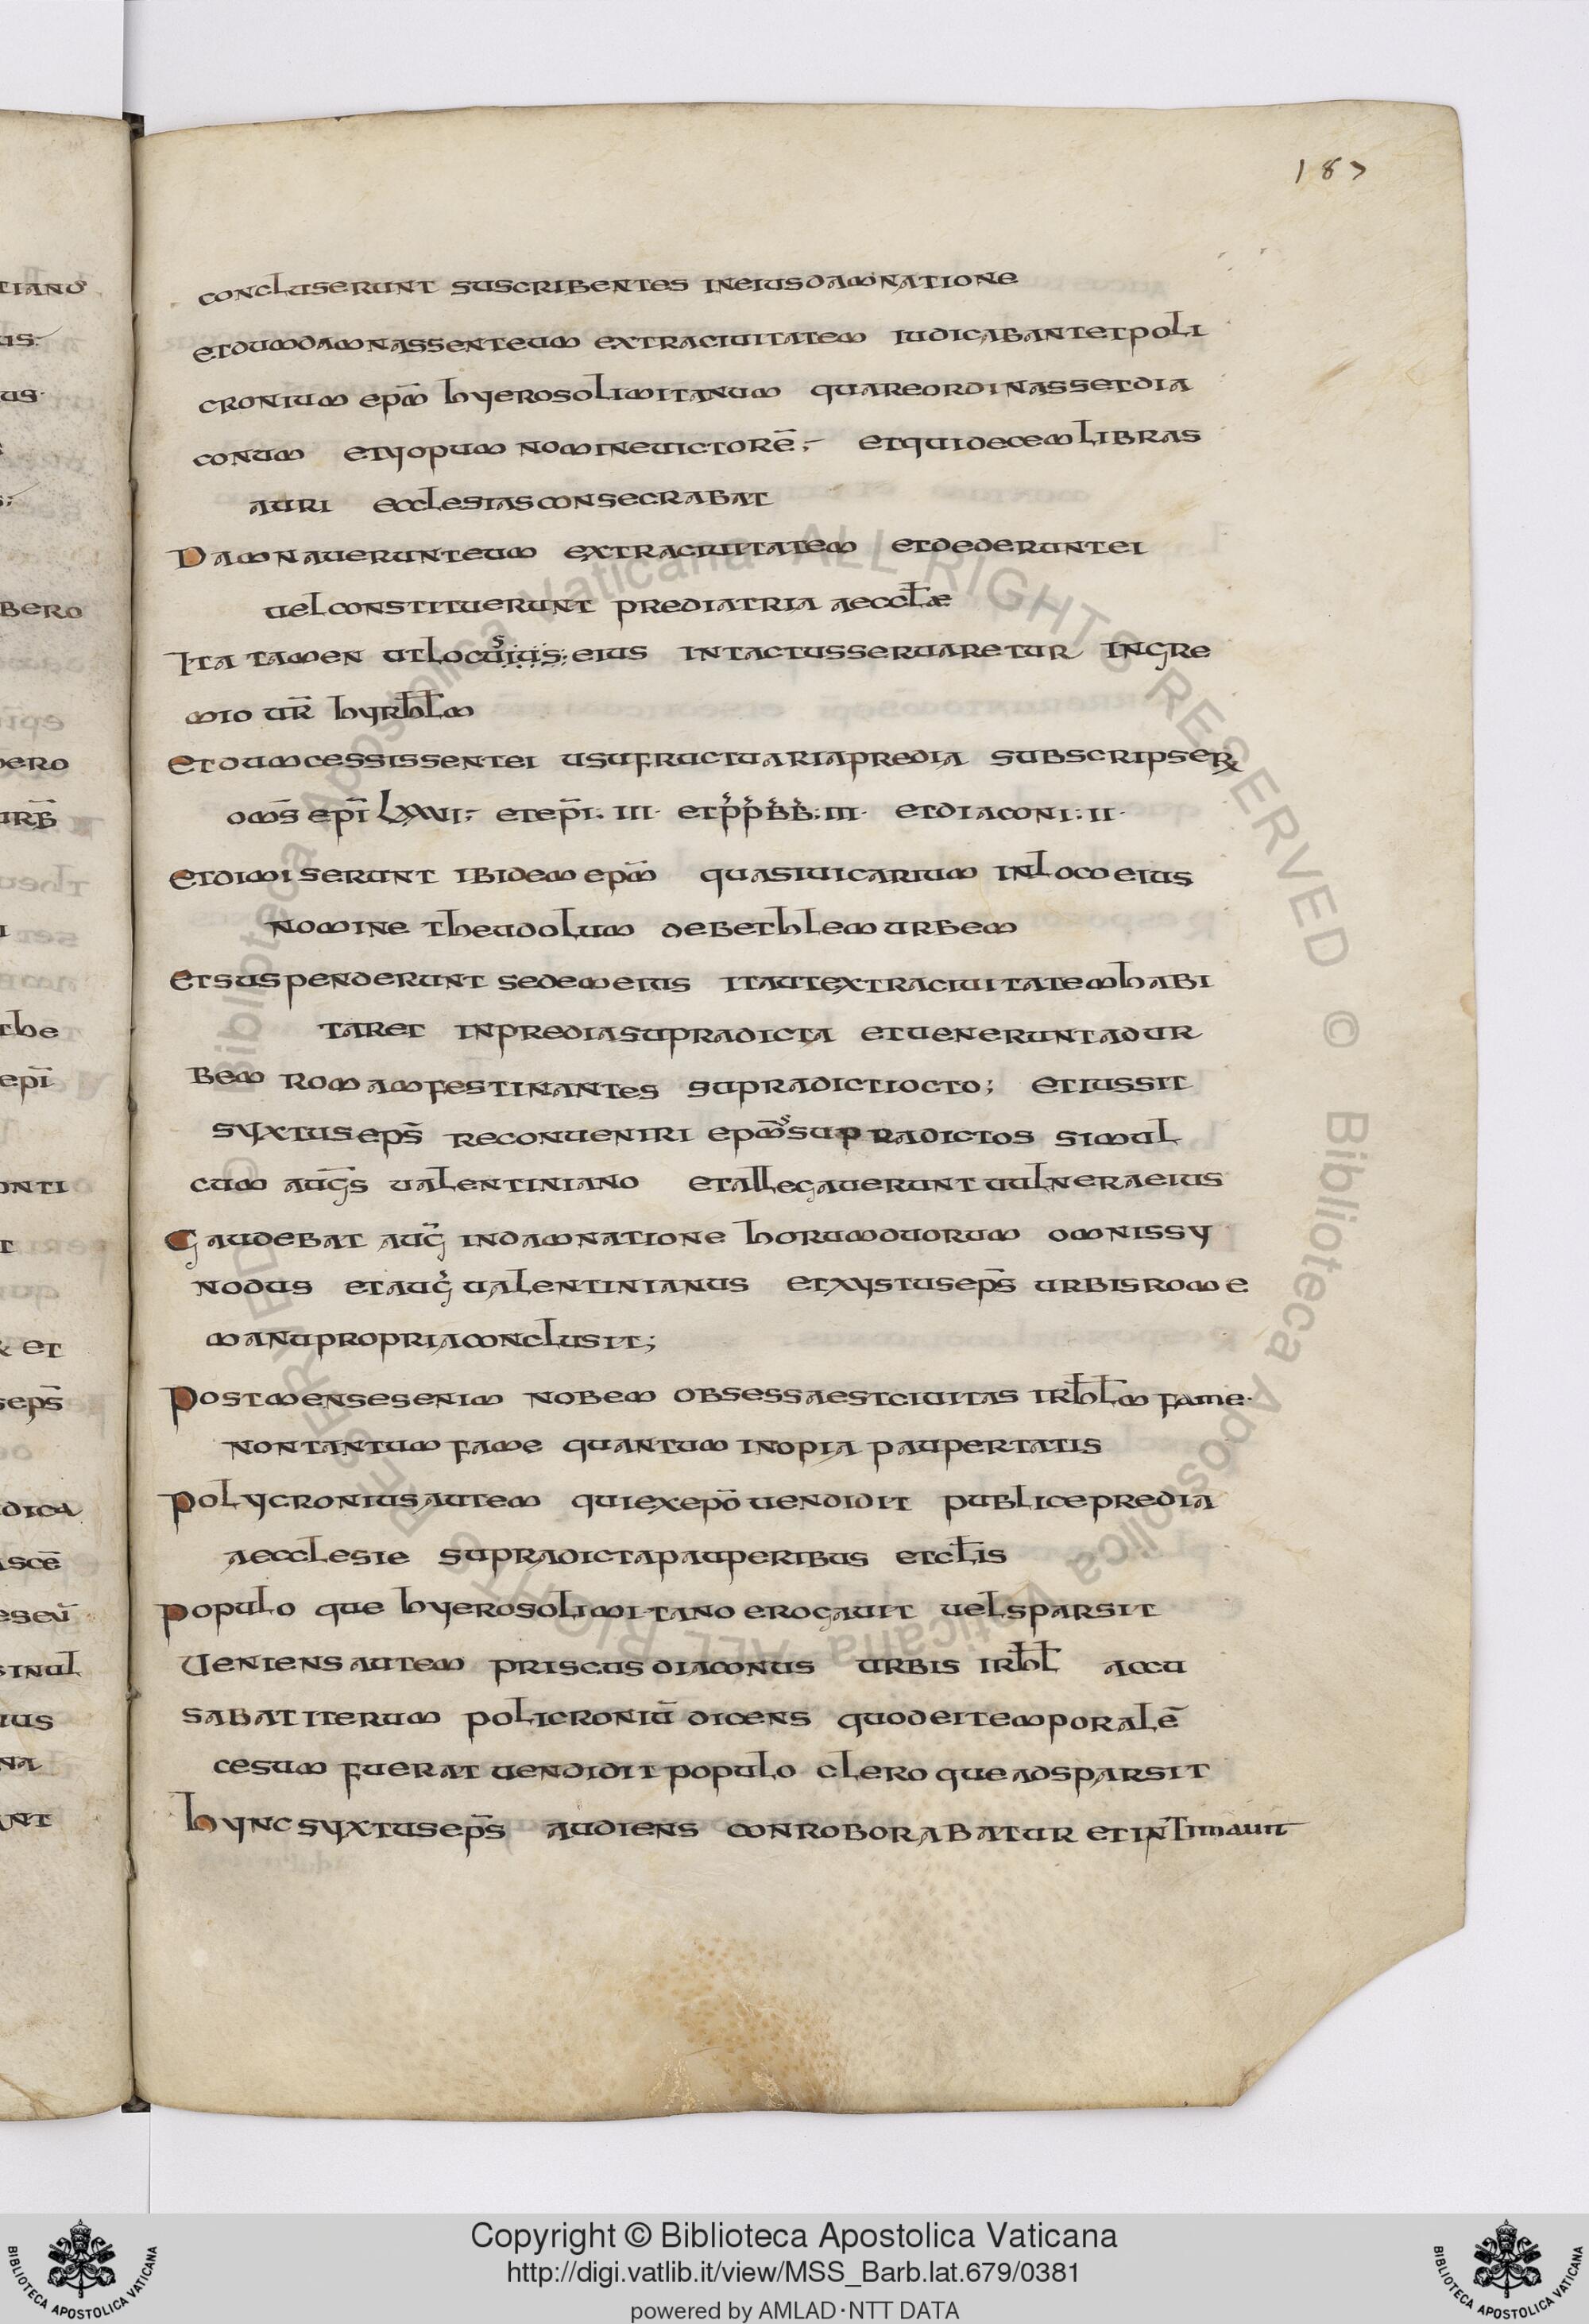 187
concluserunt suscribentes ineiusdamnatione
etdumdamnassenteum extraciuitatem iudicabantetpoli
cronium ep̄m hyerosolimitanum quareordinassetdia
conum etyopum nomineuictorē; etquidecemlibras
auri ecclesiasconsecrabat
Damnauerunteum extraciuitatem etdederuntei
uelconstituerunt prediatria aeccl̄ae
Ita tamen utlocusius; eius intactusseruaretur ingre
mio ur̄ hyrhl̄m
etdumcessissentei usufructuariapredia subscripser
om̄s ep̄i LXXVI; etep̄i. III. etp̄p̄b̄b̄: III. etdiaconi: II.
etdimiserunt ibidem ep̄m quasiuicarium inloco eius
nomine theudolum debethlemurbem
etsuspenderunt sedemeius itautextraciuitatemhabi
taret inprediasupradicta etueneruntadur
bem romamfestinantes supradictiocto; etiussit
syxtusep̄s reconueniri ep̄mssupradictos simul
cum aug̅s ualentiniano etallegauerunt uulneraeius
Gaudebat aug̅ indamnatione horumduorum omnissy
nodus etaug̅ualentinianus etxystusep̄s urbisrome
manupropriaconclusit;
Postmensesenim nobem obsessaestciuitas irhl̄m fame.
nontantum fame quantum inopia paupertatis
polycroniusautem quiexep̄o uendidit publicepredia
aecclesie supradictapauperibus etcl̄is
populo que hyerosolimitano erogauit uelsparsit
Veniensautem priscusdiaconus urbis irhl̄ accu
sabatiterum policroniū dicens quodeitemporalē
cesum fuerat uendidit populo cleroqueadsparsit
hyncsyxtusep̄s audiens conroborabatur etintimauit
Copyright © Biblioteca Apostolica Vaticana
http://digi.vatlib.it/view/MSS_Barb.lat.679/0381
powered by AMLAD·NTT DATA
BIBLIOTECA APOSTOLICA VATICANA
BIBLIOTECA APOSTOLICA VATICANA